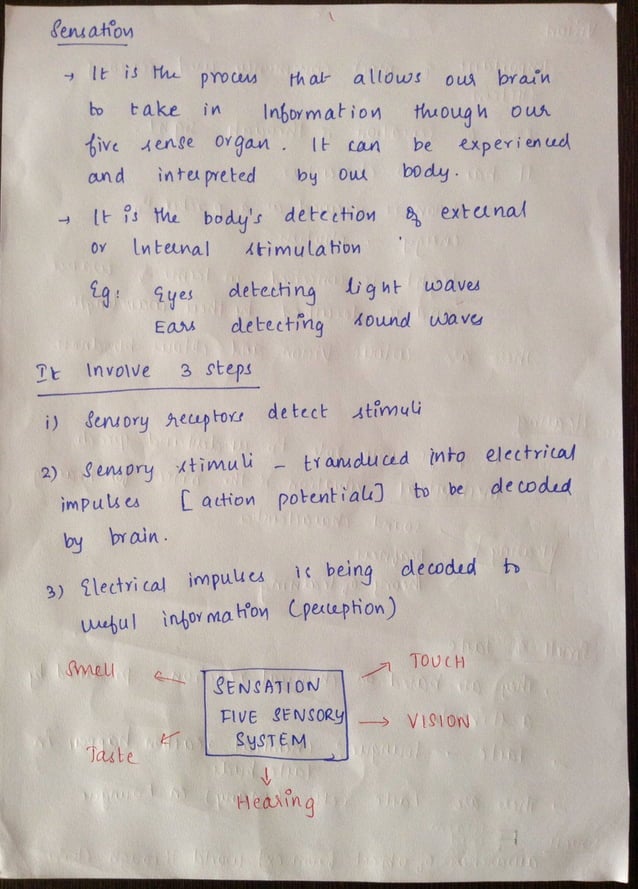 Sensation
→ It is the process that allows our brain
to take in Information through our
five sense organ. It can be experienced
and interpreted by our body.
→ It is the body's detection of external
or Internal stimulation
Eg: Eyes detecting light waves
Ears detecting sound waves
It Involve 3 steps
i) Sensory receptors detect stimuli
2) Sensory stimuli - transduced into electrical
impulses [action potentials] to be decoded
by brain.
3) Electrical impulses is being decoded to
useful information (perception)
Smell
TOUCH
SENSATION
FIVE SENSORY
SYSTEM
VISION
Taste
Hearing